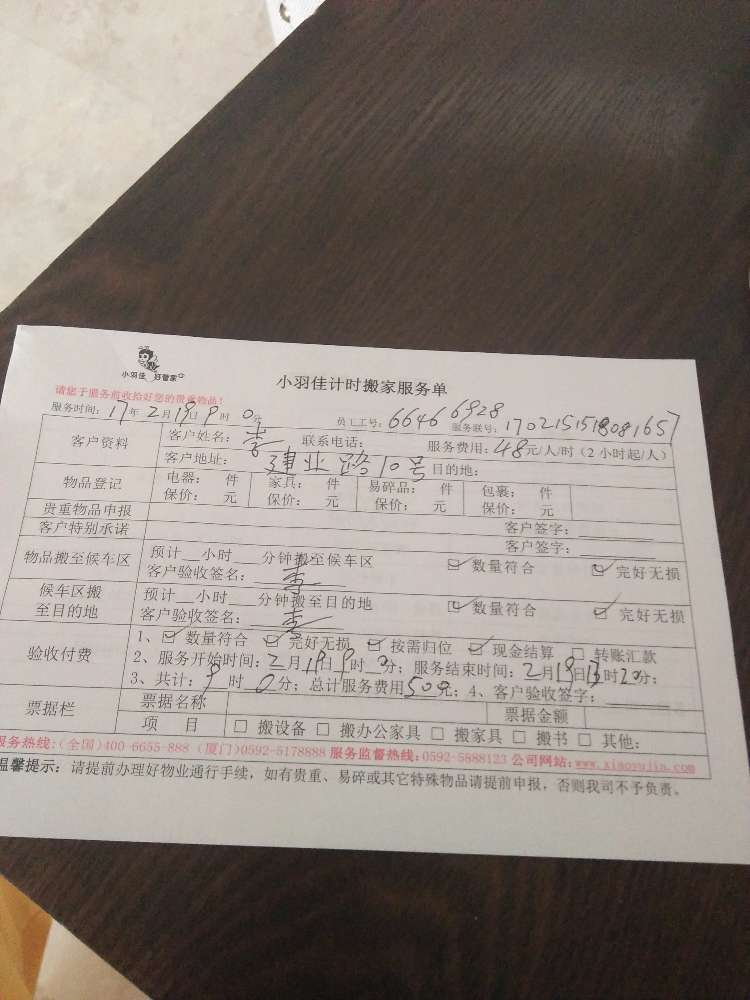 小羽佳 好管家
小羽佳计时搬家服务单
请您于服务前收拾好您的贵重物品!
服务时间: 17年2月19日9时0分 员工工号: 6646 6928 服务联号: 1702151518081657
客户资料 客户姓名: 李 联系电话: 服务费用: 48元/人/时(2小时起/人)
客户地址: 建业路10号 目的地:
物品登记 电器: 件 家具: 件 易碎品: 件 包裹: 件
保价: 元 保价: 元 保价: 元 保价: 元
贵重物品申报 客户签字:
客户特别承诺 客户签字:
物品搬至候车区 预计__小时___分钟搬至候车区 ☑ 数量符合 ☑ 完好无损
客户验收签名: 李
候车区搬至目的地 预计__小时___分钟搬至目的地 ☑ 数量符合 ☑ 完好无损
客户验收签名: 李
验收付费 1、☑ 数量符合 ☑ 完好无损 ☑ 按需归位 ☑ 现金结算 □ 转账汇款
2、服务开始时间: 2月19日9时0分; 服务结束时间: 2月19日时20分;
3、共计: 时0分; 总计服务费用500元; 4、客户验收签字:
票据栏 票据名称 票据金额
项 目 □ 搬设备 □ 搬办公家具 □ 搬家具 □ 搬书 □ 其他:
服务热线:(全国)400-6655-888 (厦门)0592-5178888 服务监督热线:0592-5888123 公司网站: www.xiaoyujia.com
温馨提示: 请提前办理好物业通行手续, 如有贵重、易碎或其它特殊物品请提前申报, 否则我司不予负责。